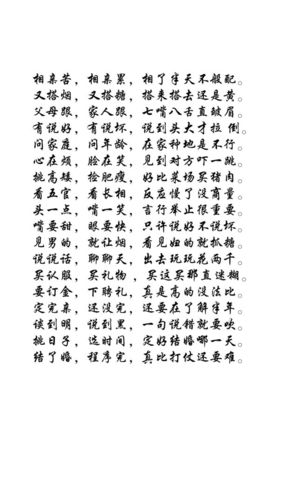 相亲苦，相亲累，相了半天不般配。
又搭烟，又搭糖，搭来搭去还是黄。
父母跟，家人跟，七嘴八舌直皱眉。
有说好，有说坏，说到头大才拉倒。
问家庭，问年龄，在家种地是不行。
心在烦，脸在笑，见到对方吓一跳。
挑高矮，捡肥瘦，好比菜场买猪肉。
看五官，看长相，反应慢了没商量。
头一点，嘴一笑，言行举止很重要。
嘴要甜，眼要快，只许说好不说坏。
见男的，就让烟，看见妞的就抓糖。
说说话，聊聊天，出去玩玩花两千。
买认服，买礼物，买这买那直迷糊。
要订金，下聘礼，真是高的没法比。
定完亲，还没完，还要在了解半年。
谈到明，说到黑，一句说错就要吹。
挑日子，选时间，定好结婚哪一天。
结了婚，程序完，真比打仗还要难。